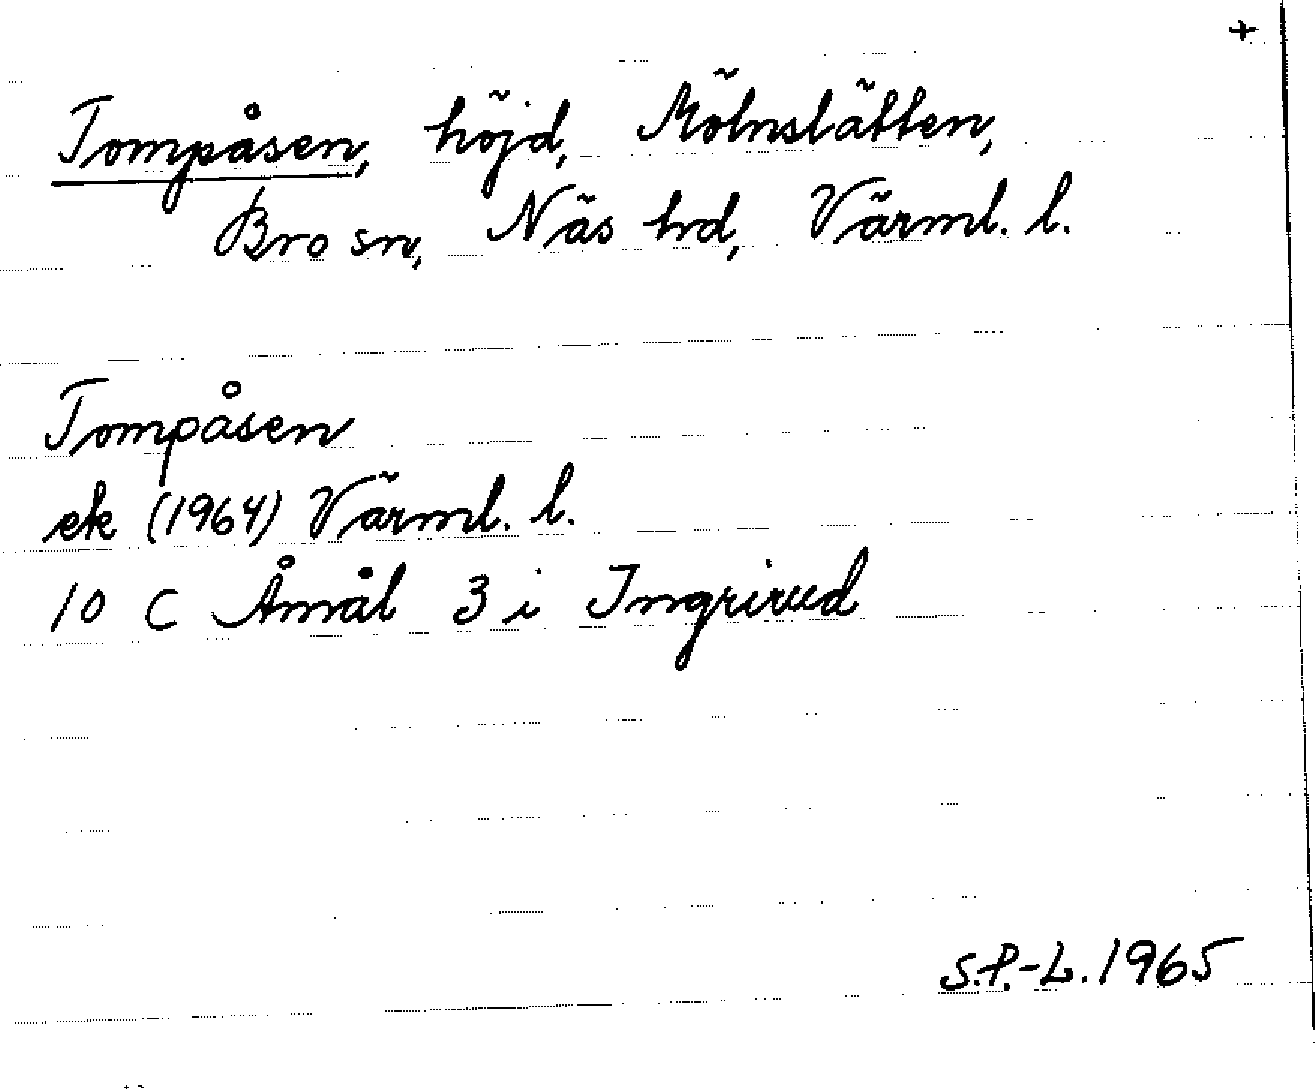 +
Tompåsen, höjd, Mölnslätten,
Bro sn, Näs hd, Värml. l.
Tompåsen
ek (1964) Värml. l.
10 C Åmål 3 i Ingrirud
S.P.-L. 1965